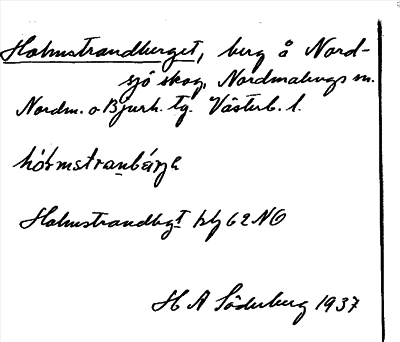 Holmstrandberget, berg å Nord-
sjö skog, Nordmalings sn.
Nordm. o Bjurh. tg. Västerb. l.
hólmstranbárje
Holmstrandbgt kbl 62 NO
H A Söderberg 1937